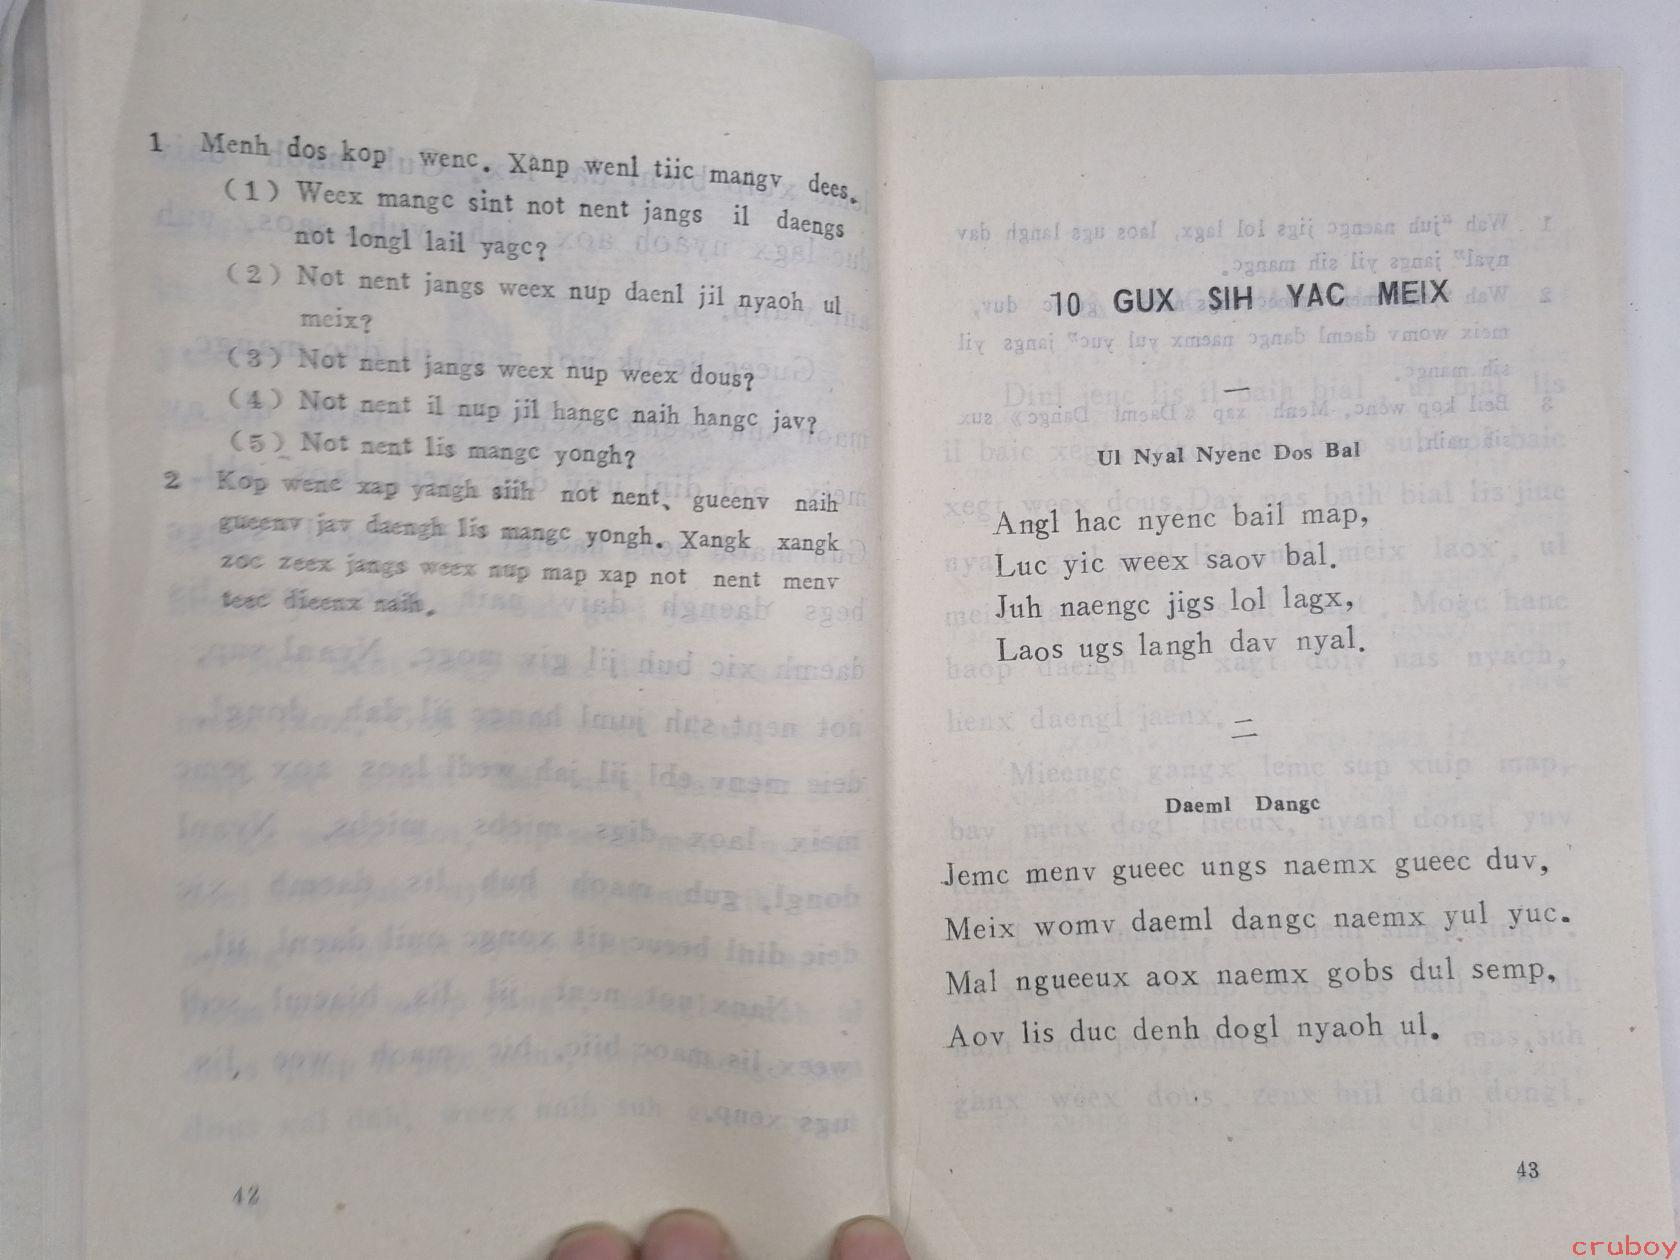 1 Menh dos kop wenc. Xanp wenl tiic mangv dees.
(1) Weex mangc sint not nent jangs il daengs
not longl lail yagc?
(2) Not nent jangs weex nup daenl jil nyaoh ul
meix?
(3) Not nent jangs weex nup weex dous?
(4) Not nent il nup jil hangc naih hangc jav?
(5) Not nent lis mangc yongh?
2 Kop wenc xap yangh siih not nent、 gueenv naih
gueenv jav daengh lis mangc yongh. Xangk xangk
zoc zeex jangs weex nup map xap not nent menv
teec dieenx naih.
42
10 GUX SIH YAC MEIX
一
Ul Nyal Nyenc Dos Bal
Angl hac nyenc bail map,
Luc yic weex saov bal.
Juh naengc jigs lol lagx,
Laos ugs langh dav nyal.
二
Daeml Dangc
Jemc menv gueec ungs naemx gueec duv,
Meix womv daeml dangc naemx yul yuc.
Mal ngueeux aox naemx gobs dul semp,
Aov lis duc denh dogl nyaoh ul.
43
cruboy